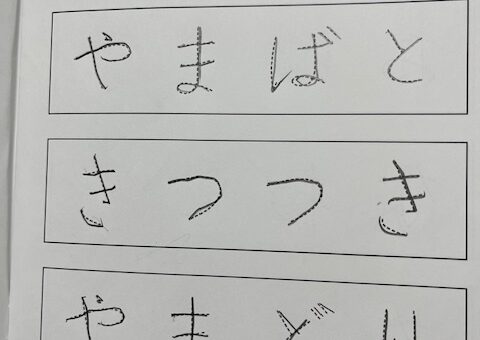 やまばと
きつつき
やまどり